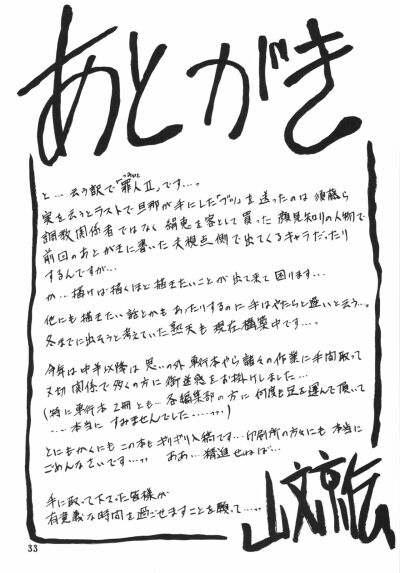 あとがき
と…云う訳で「罪人Ⅱ」です…。
つみびと
実を云うとラストで旦那が手にした「ブツ」を送ったのは須藤ら
調教関係者ではなく絹恵を客として買った顔見知りの人物で
前回のあとがきに書いた夫視点側で出てくるキャラだったり
するんですが…
が…描けば描くほど描きたいことが出て来て困ります…
他にも描きたい話とかもあったりするのに手はやたらと遅いと云う…。
冬までに出そうと考えていた熟天も現在構築中です…。
今年は中半以降は思いの外単行本やら諸々の作業に手間取って
〆切関係で多くの方に御迷惑をお掛けしました…
(特に単行本2冊とも…各編集部の方に何度も足を運んで頂いて
…本当にすみませんでした……)
とにもかくにもこの本もギリギリ入稿です…印刷所の方々にも本当に
ごめんなさいです…。ああ…精進せねば…
手に取って下さった皆様が
有意義な時間を過ごせますことを願って…。
山文京伝
33